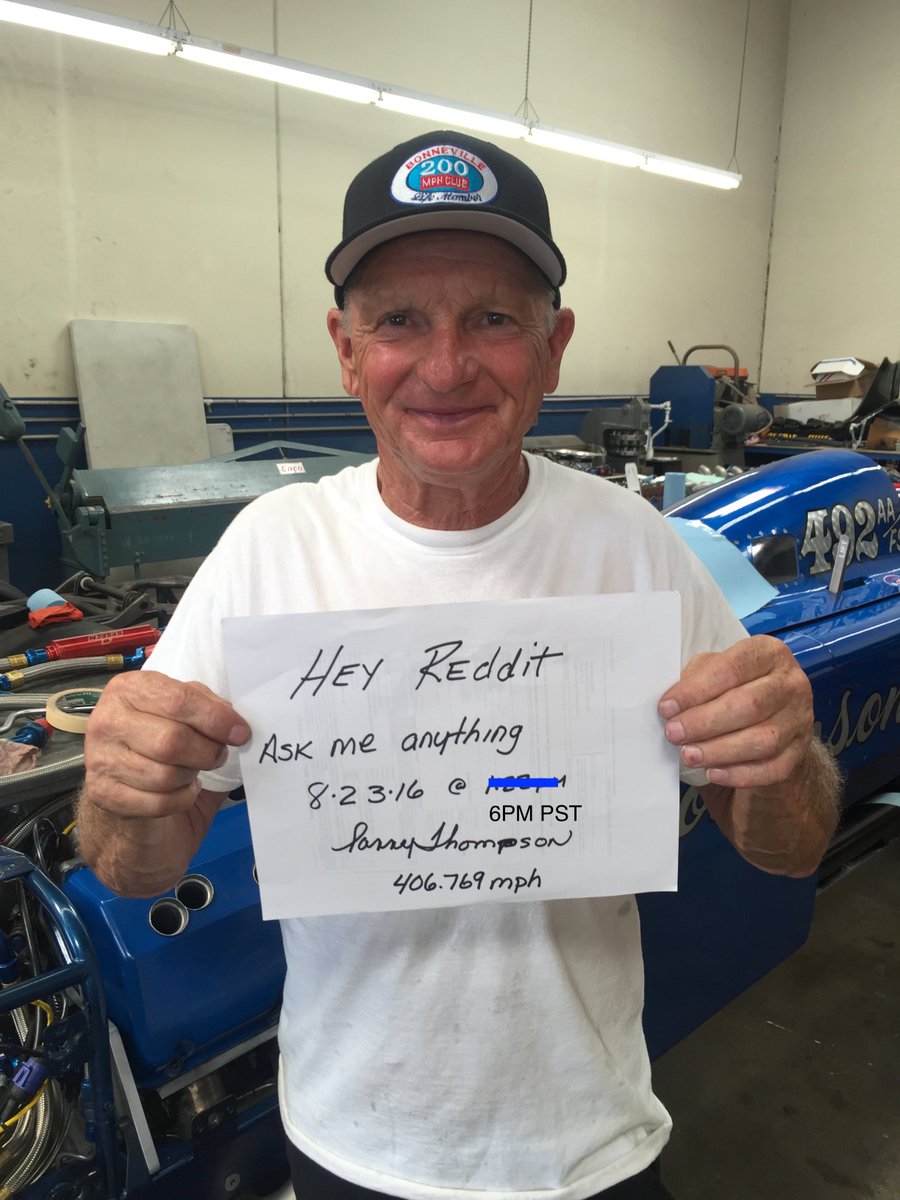 BONNEVILLE
200
MPH CLUB
Life Member
Enco
492 AA
FS
LIFT
son
HEY Reddit
Ask me anything
8.23.16 @
6PM PST
Danny Thompson
406.769 mph